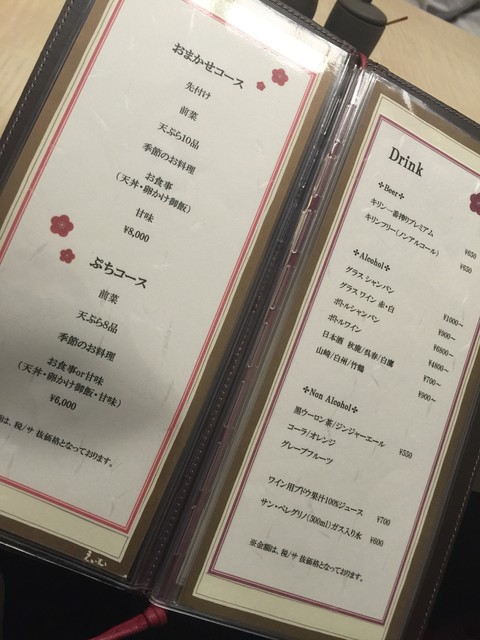 おまかせコース
先付け
前菜
天ぷら10品
季節のお料理
お食事
(天丼・卵かけ御飯)
甘味
¥8,000
ぷちコース
前菜
天ぷら8品
季節のお料理
お食事or甘味
(天丼・卵かけ御飯・甘味)
¥6,000
は、税/サ 抜価格となっております。
Drink
✤Beer✤
キリン一番搾りプレミアム ¥650
キリンフリー(ノンアルコール) ¥650
✤Alcohol✤
グラスシャンパン ¥1000~
グラスワイン 赤・白 ¥900~
ボトルシャンパン ¥6800~
ボトルワイン ¥4800~
日本酒 秋鹿/呉春/白鷹 ¥700~
山崎/白州/竹鶴 ¥900~
✤Non Alcohol✤
黒ウーロン茶/ジンジャーエール ¥550
コーラ/オレンジ
グレープフルーツ
ワイン用ブドウ果汁100%ジュース ¥700
サン・ペレグリノ(500ml)ガス入り水 ¥600
※金額は、税/サ 抜価格となっております。